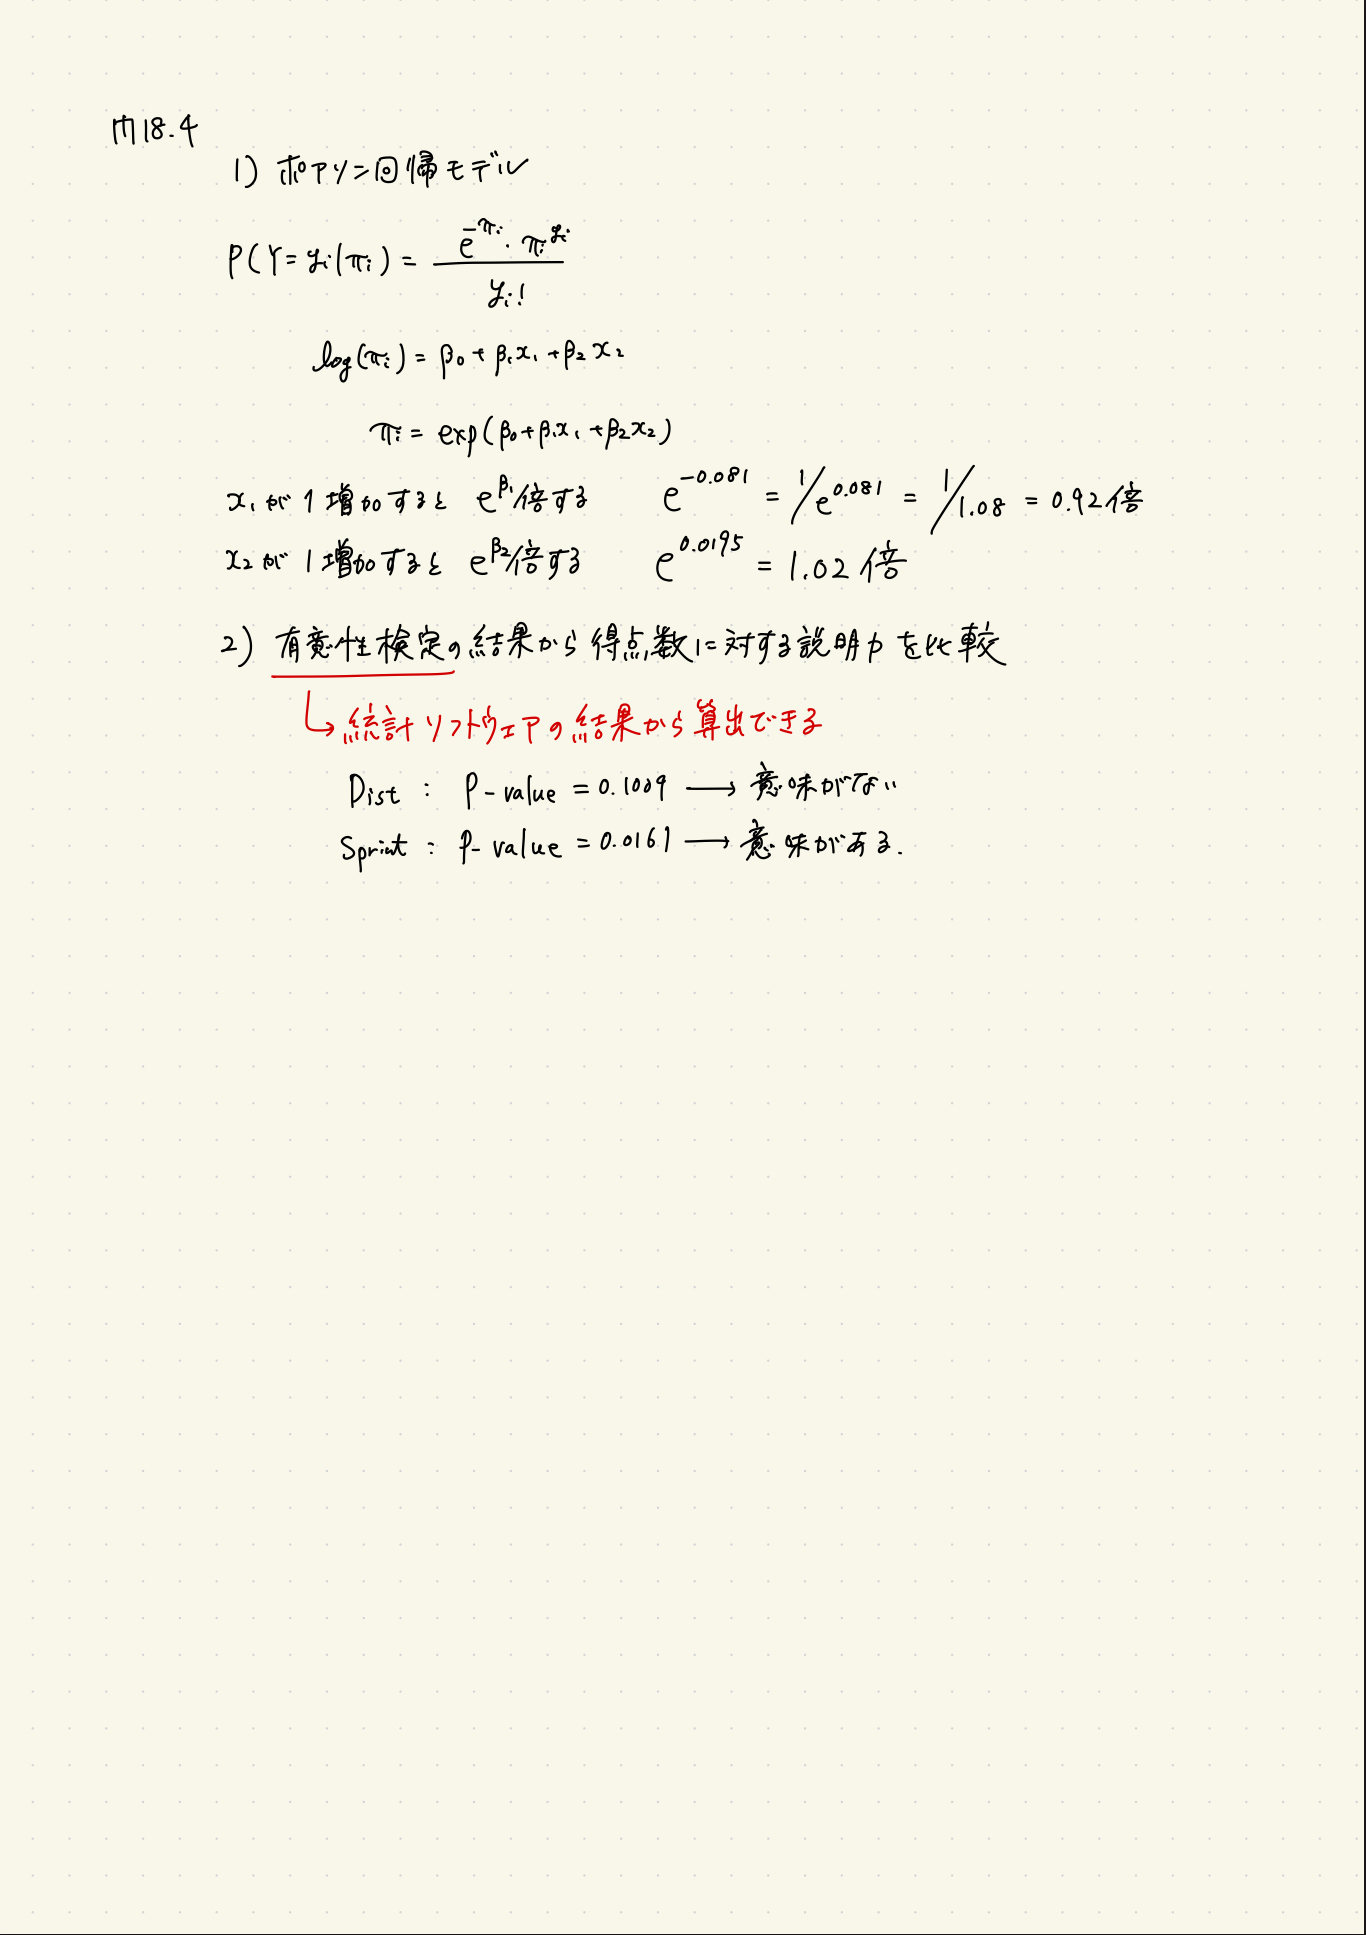 問18.4
1) ポアソン回帰モデル
P(Y=yᵢ|πᵢ) = e^{-πᵢ}・πᵢ^{yᵢ} / yᵢ!
log(πᵢ) = β₀ + β₁x₁ + β₂x₂
πᵢ = exp(β₀+β₁x₁+β₂x₂)
x₁が1増加すると e^{β₁}倍する e^{-0.081} = 1/e^{0.081} = 1/1.08 = 0.92倍
x₂が1増加すると e^{β₂}倍する e^{0.0195} = 1.02倍
2) 有意性検定の結果から得点数に対する説明力を比較
↳統計ソフトウェアの結果から算出できる
Dist : P-value = 0.1009 → 意味がない
Sprint : P-value = 0.0161 → 意味がある.